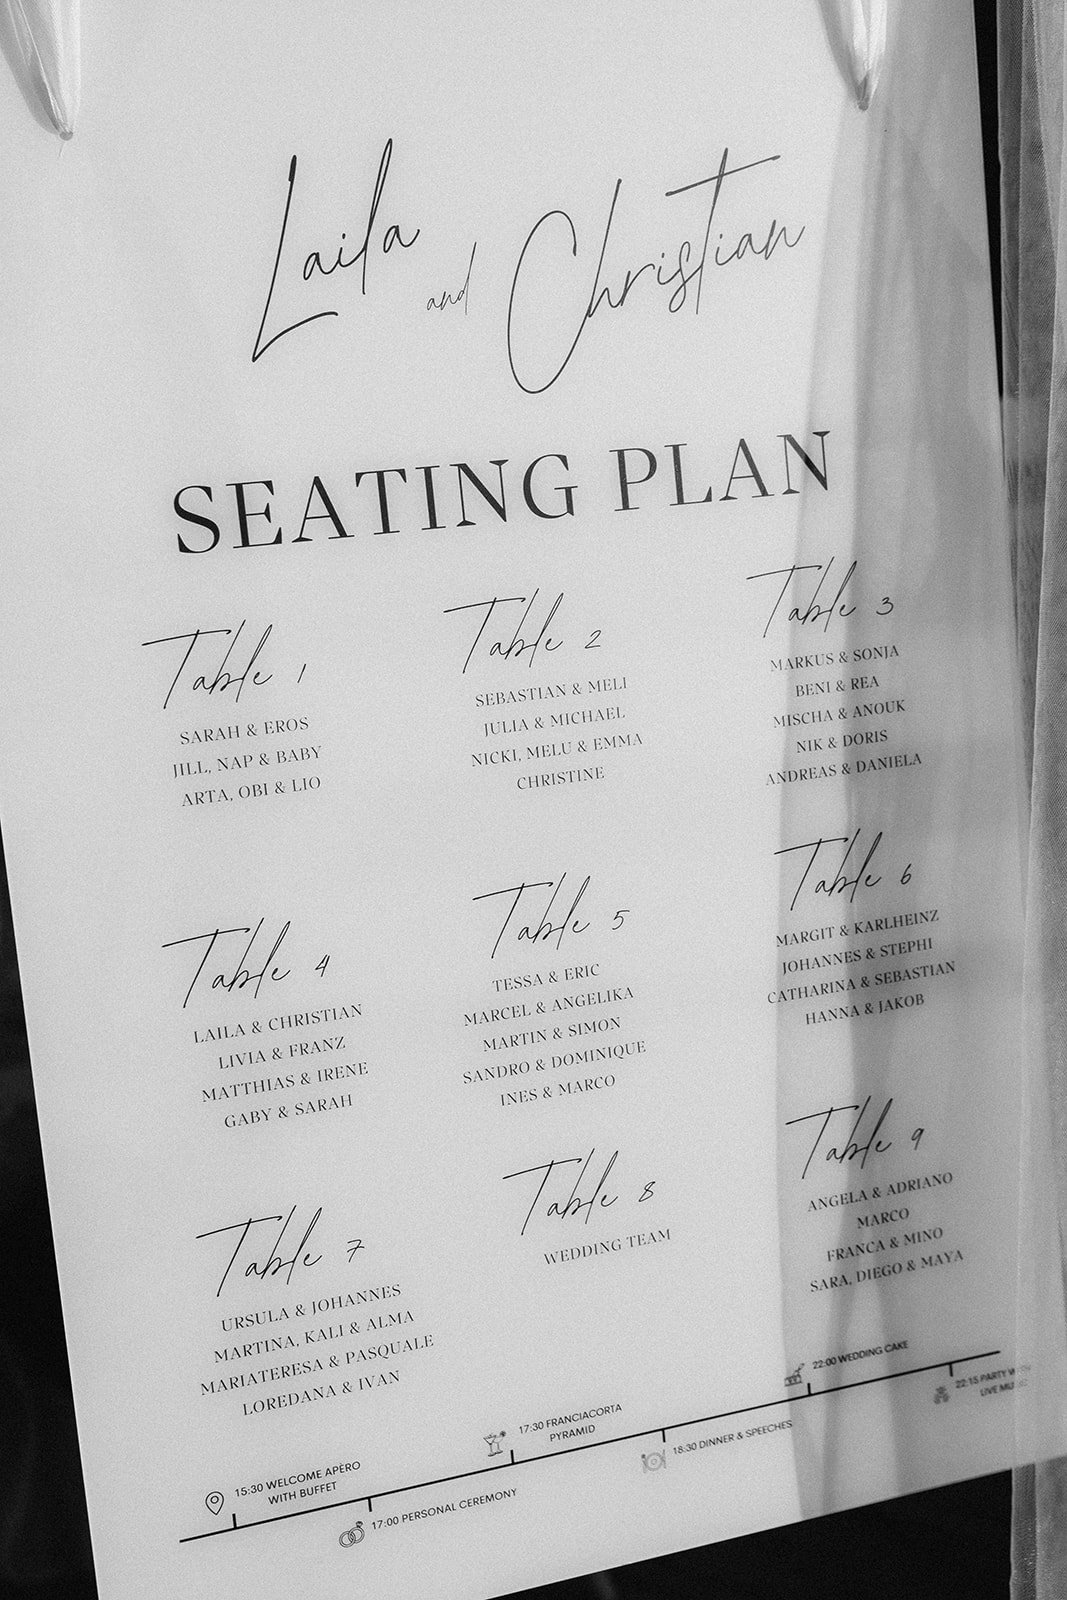 Laila
and Christian
SEATING PLAN
Table 1
SARAH & EROS
JILL, NAP & BABY
ARTA, OBI & LIO
Table 2
SEBASTIAN & MELI
JULIA & MICHAEL
NICKI, MELU & EMMA
CHRISTINE
Table 3
MARKUS & SONJA
BENI & REA
MISCHA & ANOUK
NIK & DORIS
ANDREAS & DANIELA
Table 4
LAILA & CHRISTIAN
LIVIA & FRANZ
MATTHIAS & IRENE
GABY & SARAH
Table 5
TESSA & ERIC
MARCEL & ANGELIKA
MARTIN & SIMON
SANDRO & DOMINIQUE
INES & MARCO
Table 6
MARGIT & KARLHEINZ
JOHANNES & STEPHI
CATHARINA & SEBASTIAN
HANNA & JAKOB
Table 7
URSULA & JOHANNES
MARTINA, KALI & ALMA
MARIATERESA & PASQUALE
LOREDANA & IVAN
Table 8
WEDDING TEAM
Table 9
ANGELA & ADRIANO
MARCO
FRANCA & MINO
SARA, DIEGO & MAYA
15:30 WELCOME APÈRO
WITH BUFFET
17:00 PERSONAL CEREMONY
17:30 FRANCIACORTA
PYRAMID
18:30 DINNER & SPEECHES
22:00 WEDDING CAKE
22:15 PARTY
LIVE